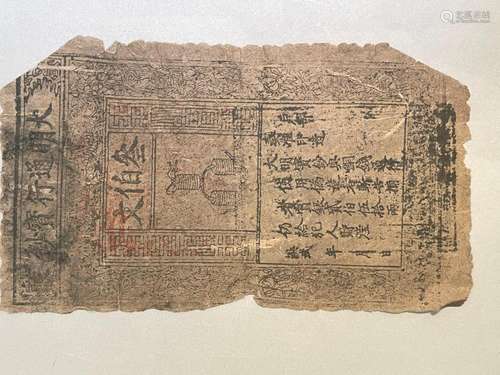 大明通行寶鈔
叁伯文
奏准印造
大明寶鈔與銅錢通行
使用偽造者斬告捕
者賞銀貳伯伍拾兩
仍給犯人財產
洪武 年 月 日